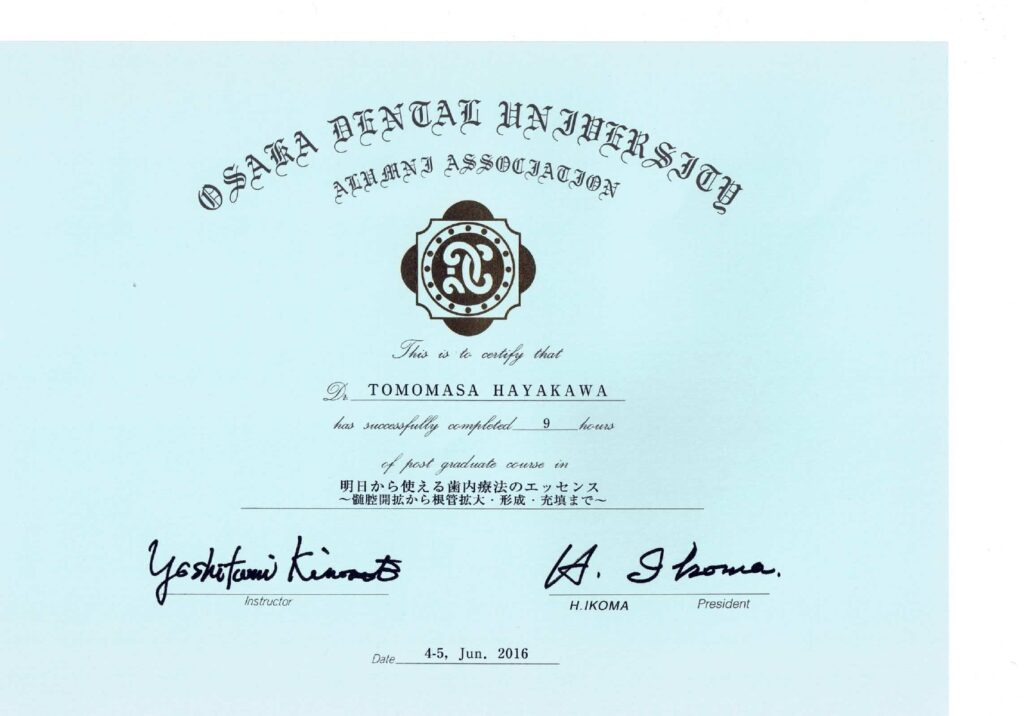 OSAKA DENTAL UNIVERSITY
ALUMNI ASSOCIATION
This is to certify that
Dr. TOMOMASA HAYAKAWA
has successfully completed 9 hours
of post graduate course in
明日から使える歯内療法のエッセンス
～髄腔開拡から根管拡大・形成・充填まで～
Yoshifumi Kinomoto
H. Ikoma.
Instructor
H.IKOMA President
Date 4-5, Jun. 2016